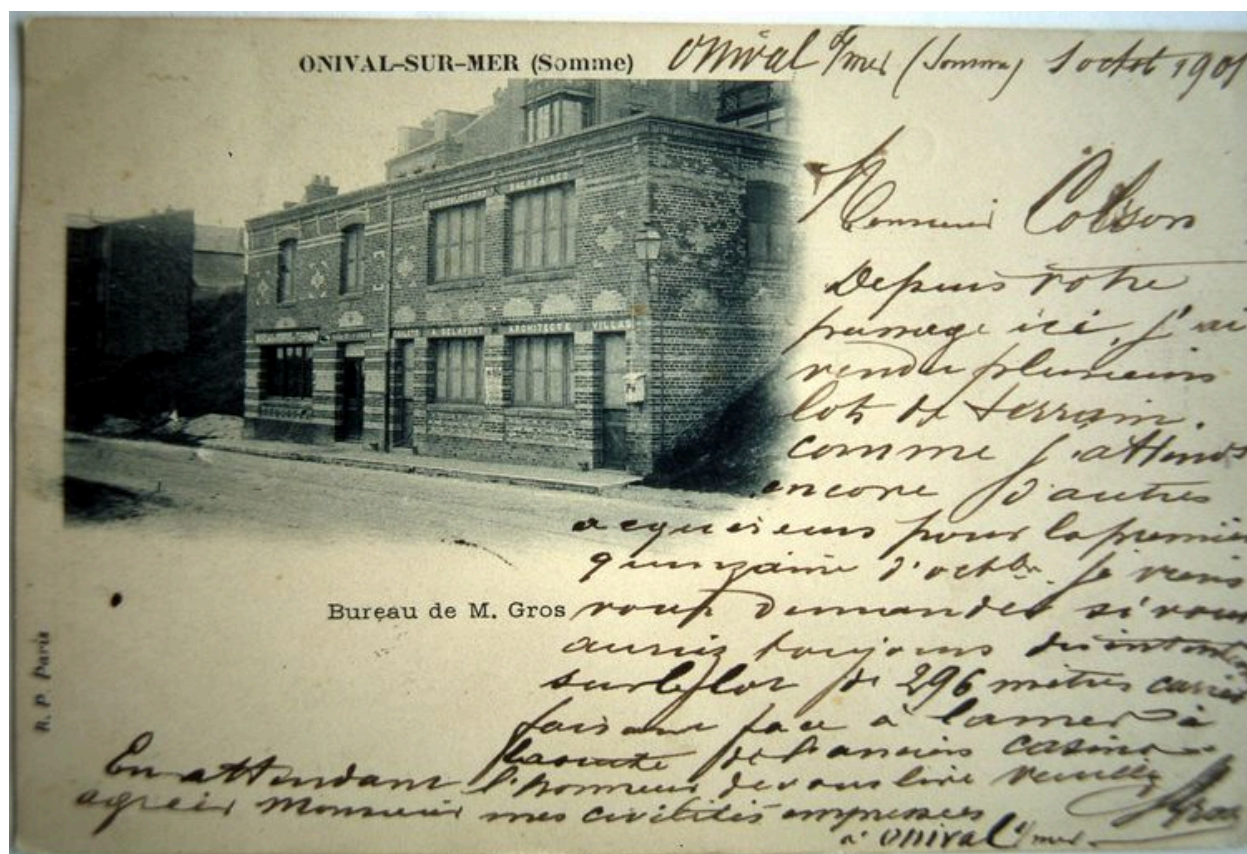 ONIVAL-SUR-MER (Somme)
Onival s/mer (Somme) 1 octob 1901
Monsieur Colson
Depuis votre
passage ici, j'ai
vendu plusieurs
lots de terrain.
comme j'attends
encore d'autres
acquereurs pour la première
quinzaine d'octbre je viens
vous demander si vous
auriez toujours des intentions
sur le lot de 296 mètres carrés
faisant face à la mer à
la suite de l'ancien casino
En attendant l'honneur de vous lire veuillez
agréer Monsieur mes civilités empressées
Gros
à Onival s/mer
Bureau de M. Gros
R. P. Paris
CHALETS A. DELAPORT ARCHITECTE VILLAS